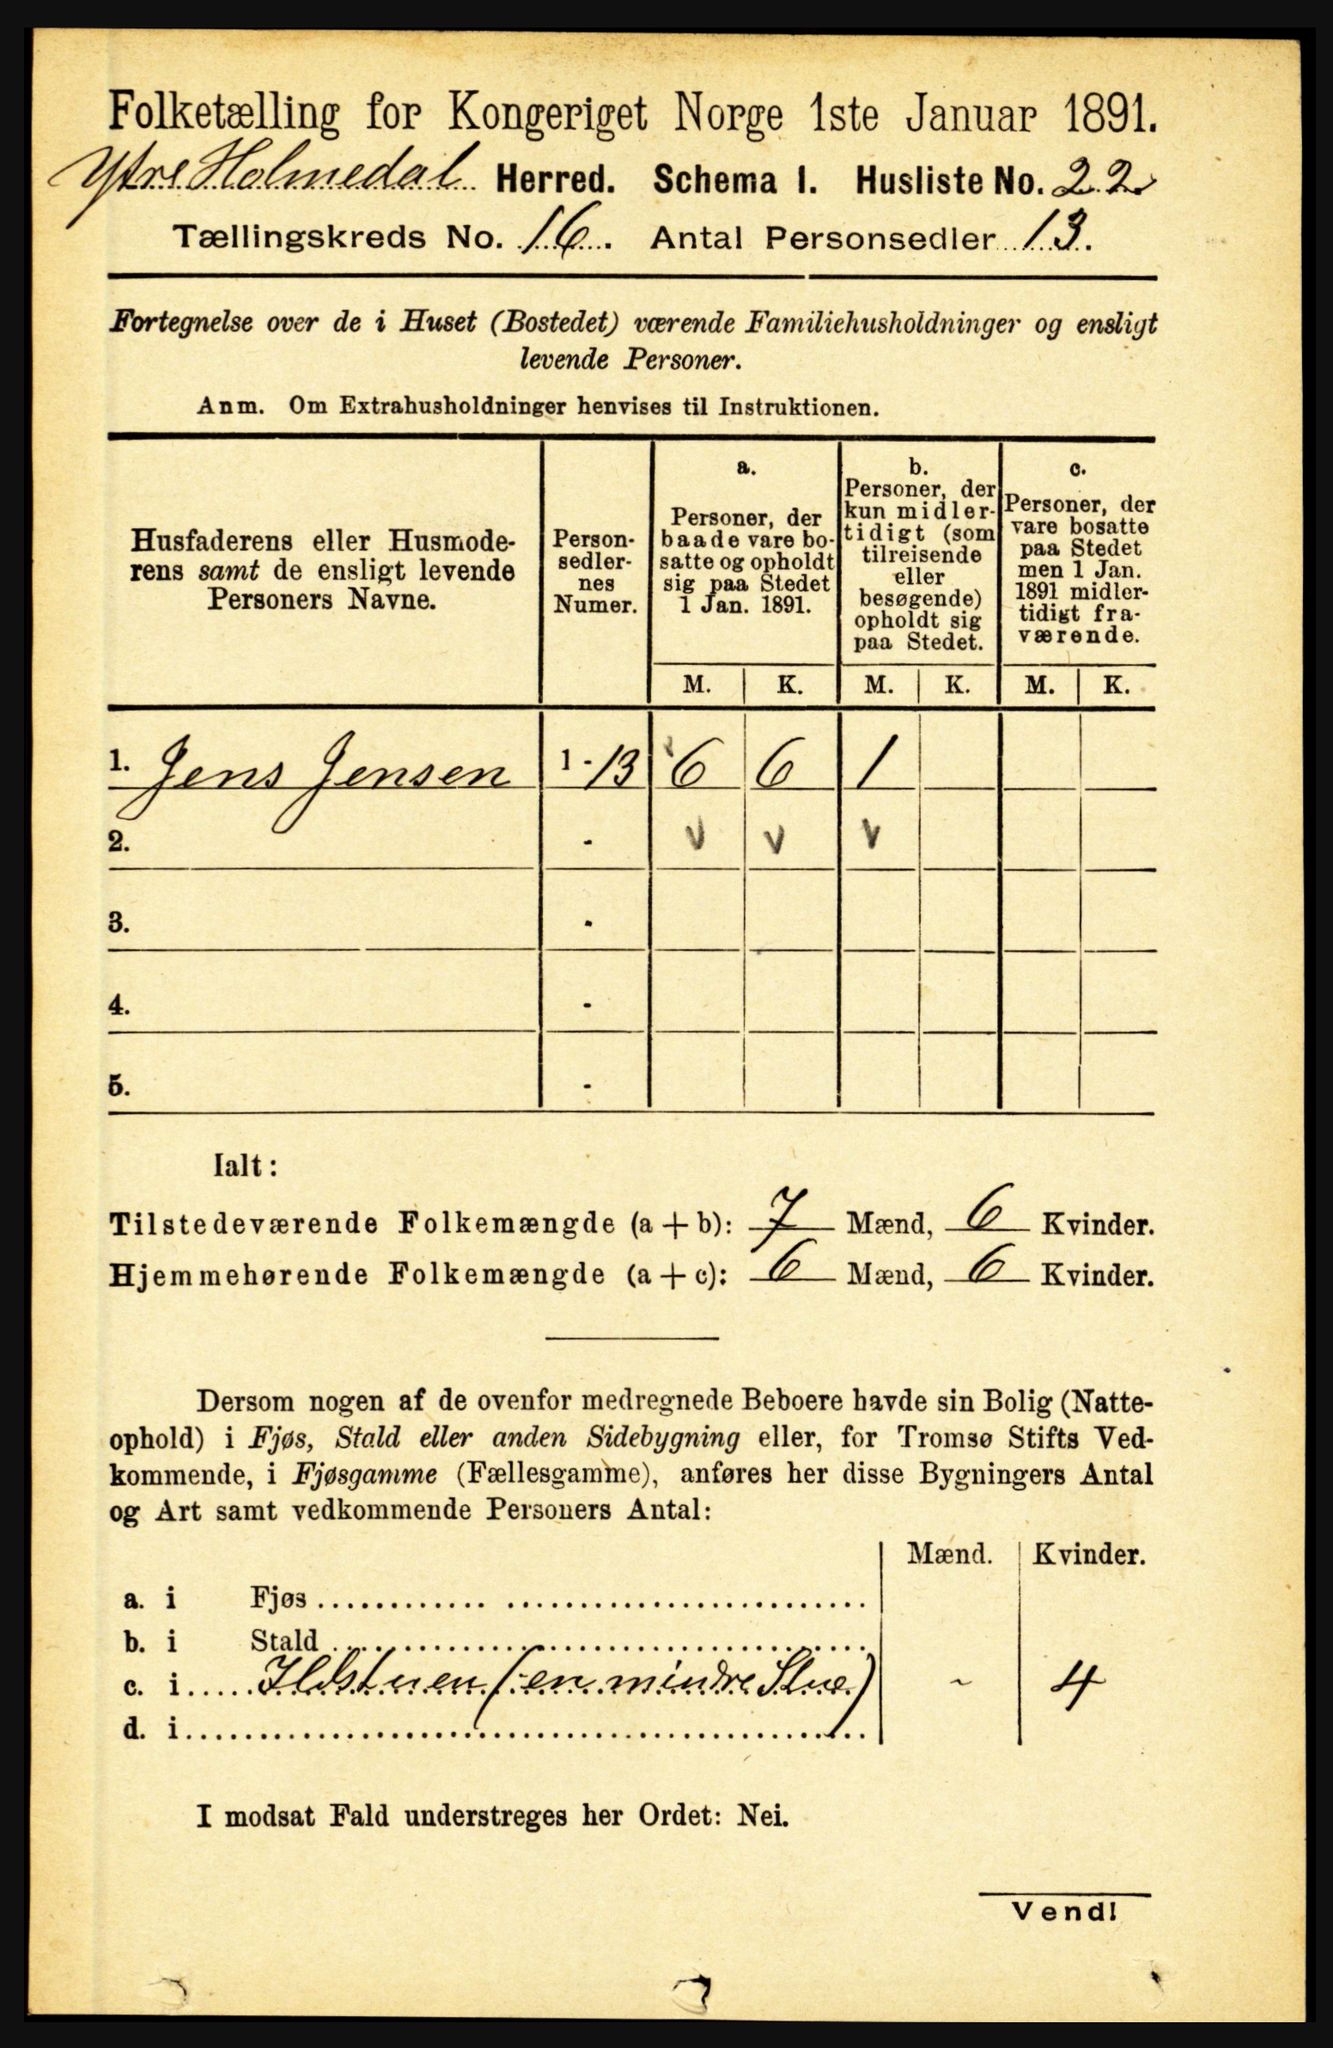 Folketælling for Kongeriget Norge 1ste Januar 1891.
Ytre Holmedal Herred. Schema I. Husliste No. 22
Tællingskreds No. 16. Antal Personsedler 13.
Fortegnelse over de i Huset (Bostedet) værende Familiehusholdninger og ensligt
levende Personer.
Anm. Om Extrahusholdninger henvises til Instruktionen.
Husfaderens eller Husmode-
rens samt de ensligt levende
Personers Navne.
Person-
sedler-
nes
Numer.
a.
Personer, der
baade vare bo-
satte og opholdt
sig paa Stedet
1 Jan. 1891.
b.
Personer, der
kun midler-
tidigt (som
tilreisende
eller
besøgende)
opholdt sig
paa Stedet.
c.
Personer, der
vare bosatte
paa Stedet
men 1 Jan.
1891 midler-
tidigt fra-
værende.
M. K. M. K. M. K.
1. Jens Jensen 1 - 13 6 6 1
2. - v v v
3. -
4. -
5. -
Ialt:
Tilstedeværende Folkemængde (a + b): 7 Mænd, 6 Kvinder.
Hjemmehørende Folkemængde (a + c): 6 Mænd, 6 Kvinder.
Dersom nogen af de ovenfor medregnede Beboere havde sin Bolig (Natte-
ophold) i Fjøs, Stald eller anden Sidebygning eller, for Tromsø Stifts Ved-
kommende, i Fjøsgamme (Fællesgamme), anføres her disse Bygningers Antal
og Art samt vedkommende Personers Antal:
Mænd. Kvinder.
a. i Fjøs
b. i Stald
c. i Ildstuen (: en mindre Stue) - 4
d. i
I modsat Fald understreges her Ordet: Nei.
Vend!